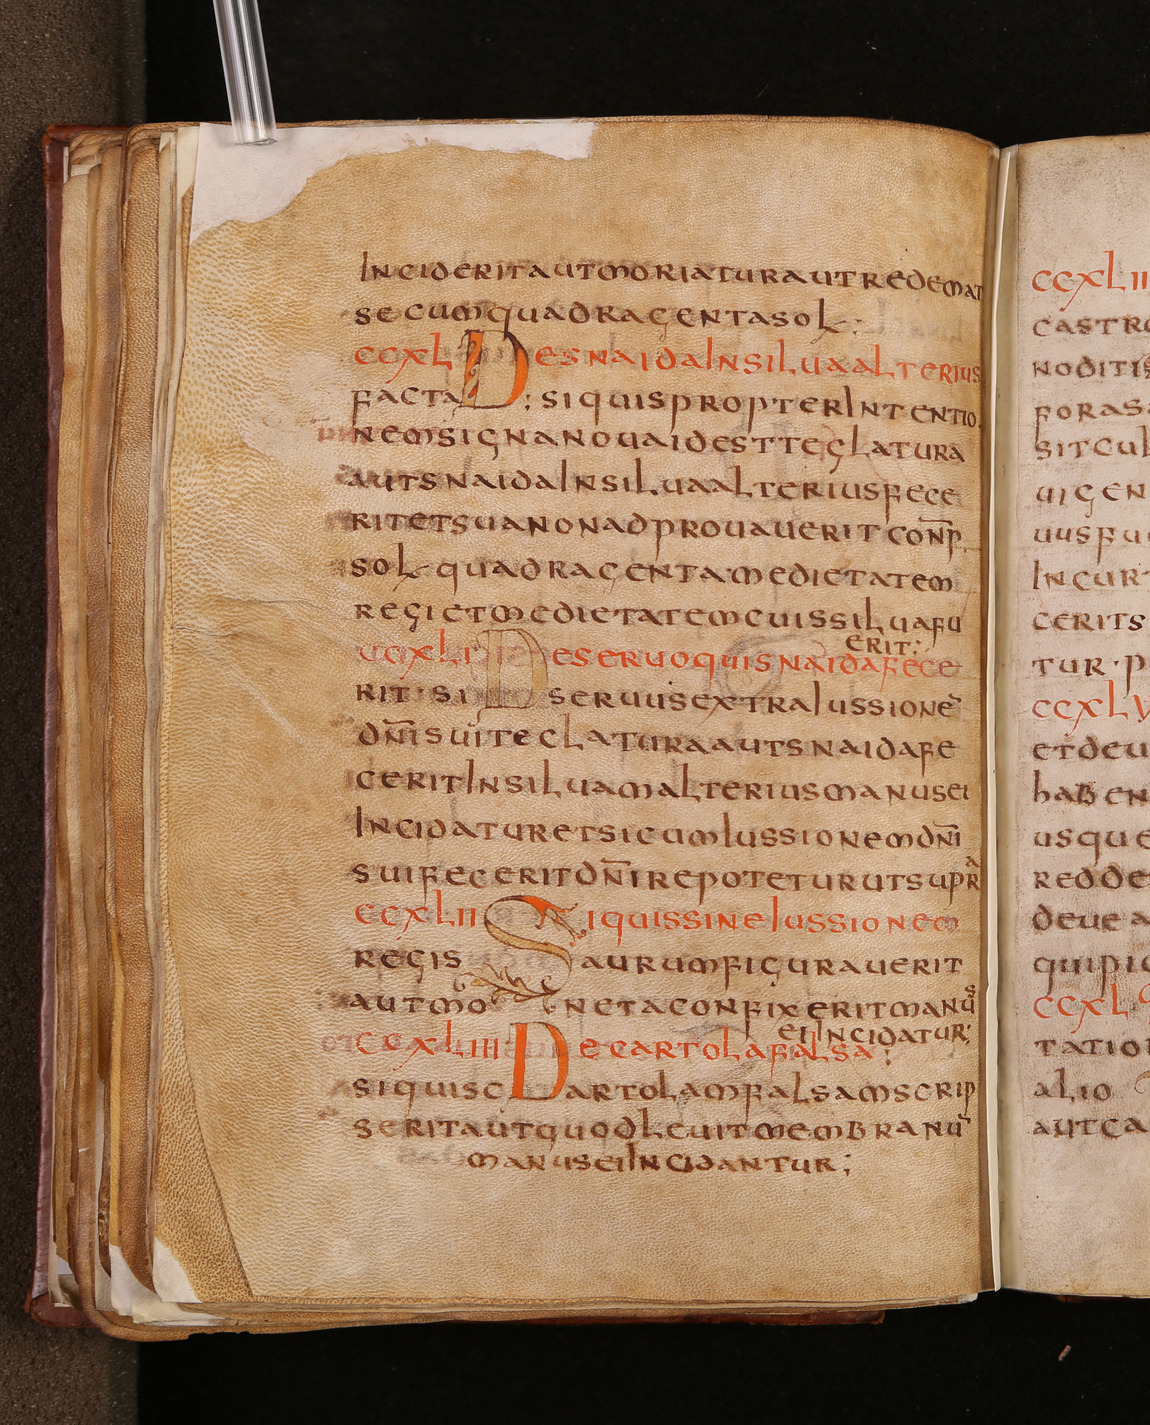 INCIDERITAUTMORIATURAUTREDEMAT
SECUMQUADRAGENTASOL:
CCXL DESNAIDAINSILUAALTERIUS
FACTA; SIQUISPROPTERINTENTIO
NEMSIGNANOUAIDESTTEGLATURA
AUTSNAIDAINSILUAALTERIUSFECE
RITETSUANONADPROUAUERITCON̄P
SOL QUADRAGENTA·MEDIETATEM
REGIETMEDIETATEMCUISSILUAFU
ERIT;
CCXLI DESERUOQUISNAIDAFECE
RIT·SI SERUUSEXTRAIUSSIONE
DN̄ISUITECLATURAAUTSNAIDAFE
CERITINSILUAMALTERIUSMANUSEI
INCIDATURETSICUMIUSSIONEMDN̄I
SUIFECERITDN̄IREPOTETURUTSUPRA
CCXLII SIQUISSINEIUSSIONEM
REGIS AURUMFIGURAUERIT
AUTMO NETACONFIXERITMANUS
EIINCIDATUR;
CCXLIII DECARTOLAFALSA;
SIQUISCARTOLAMFALSAMSCRIP
SERITAUTQUODLEUITMEMBRANŪ
MANUSEIINCIDANTUR;
CCXLII
CASTRO
NODITIS
FORAS
SITCUL
UIGEN
UUSFU
INCUR
CERITS
TUR·P
CCXLV
ETDEU
HABEN
USQUE
REDDE
DEUEA
QUIPIG
CCXL
TATIO
ALIO
AUTCA